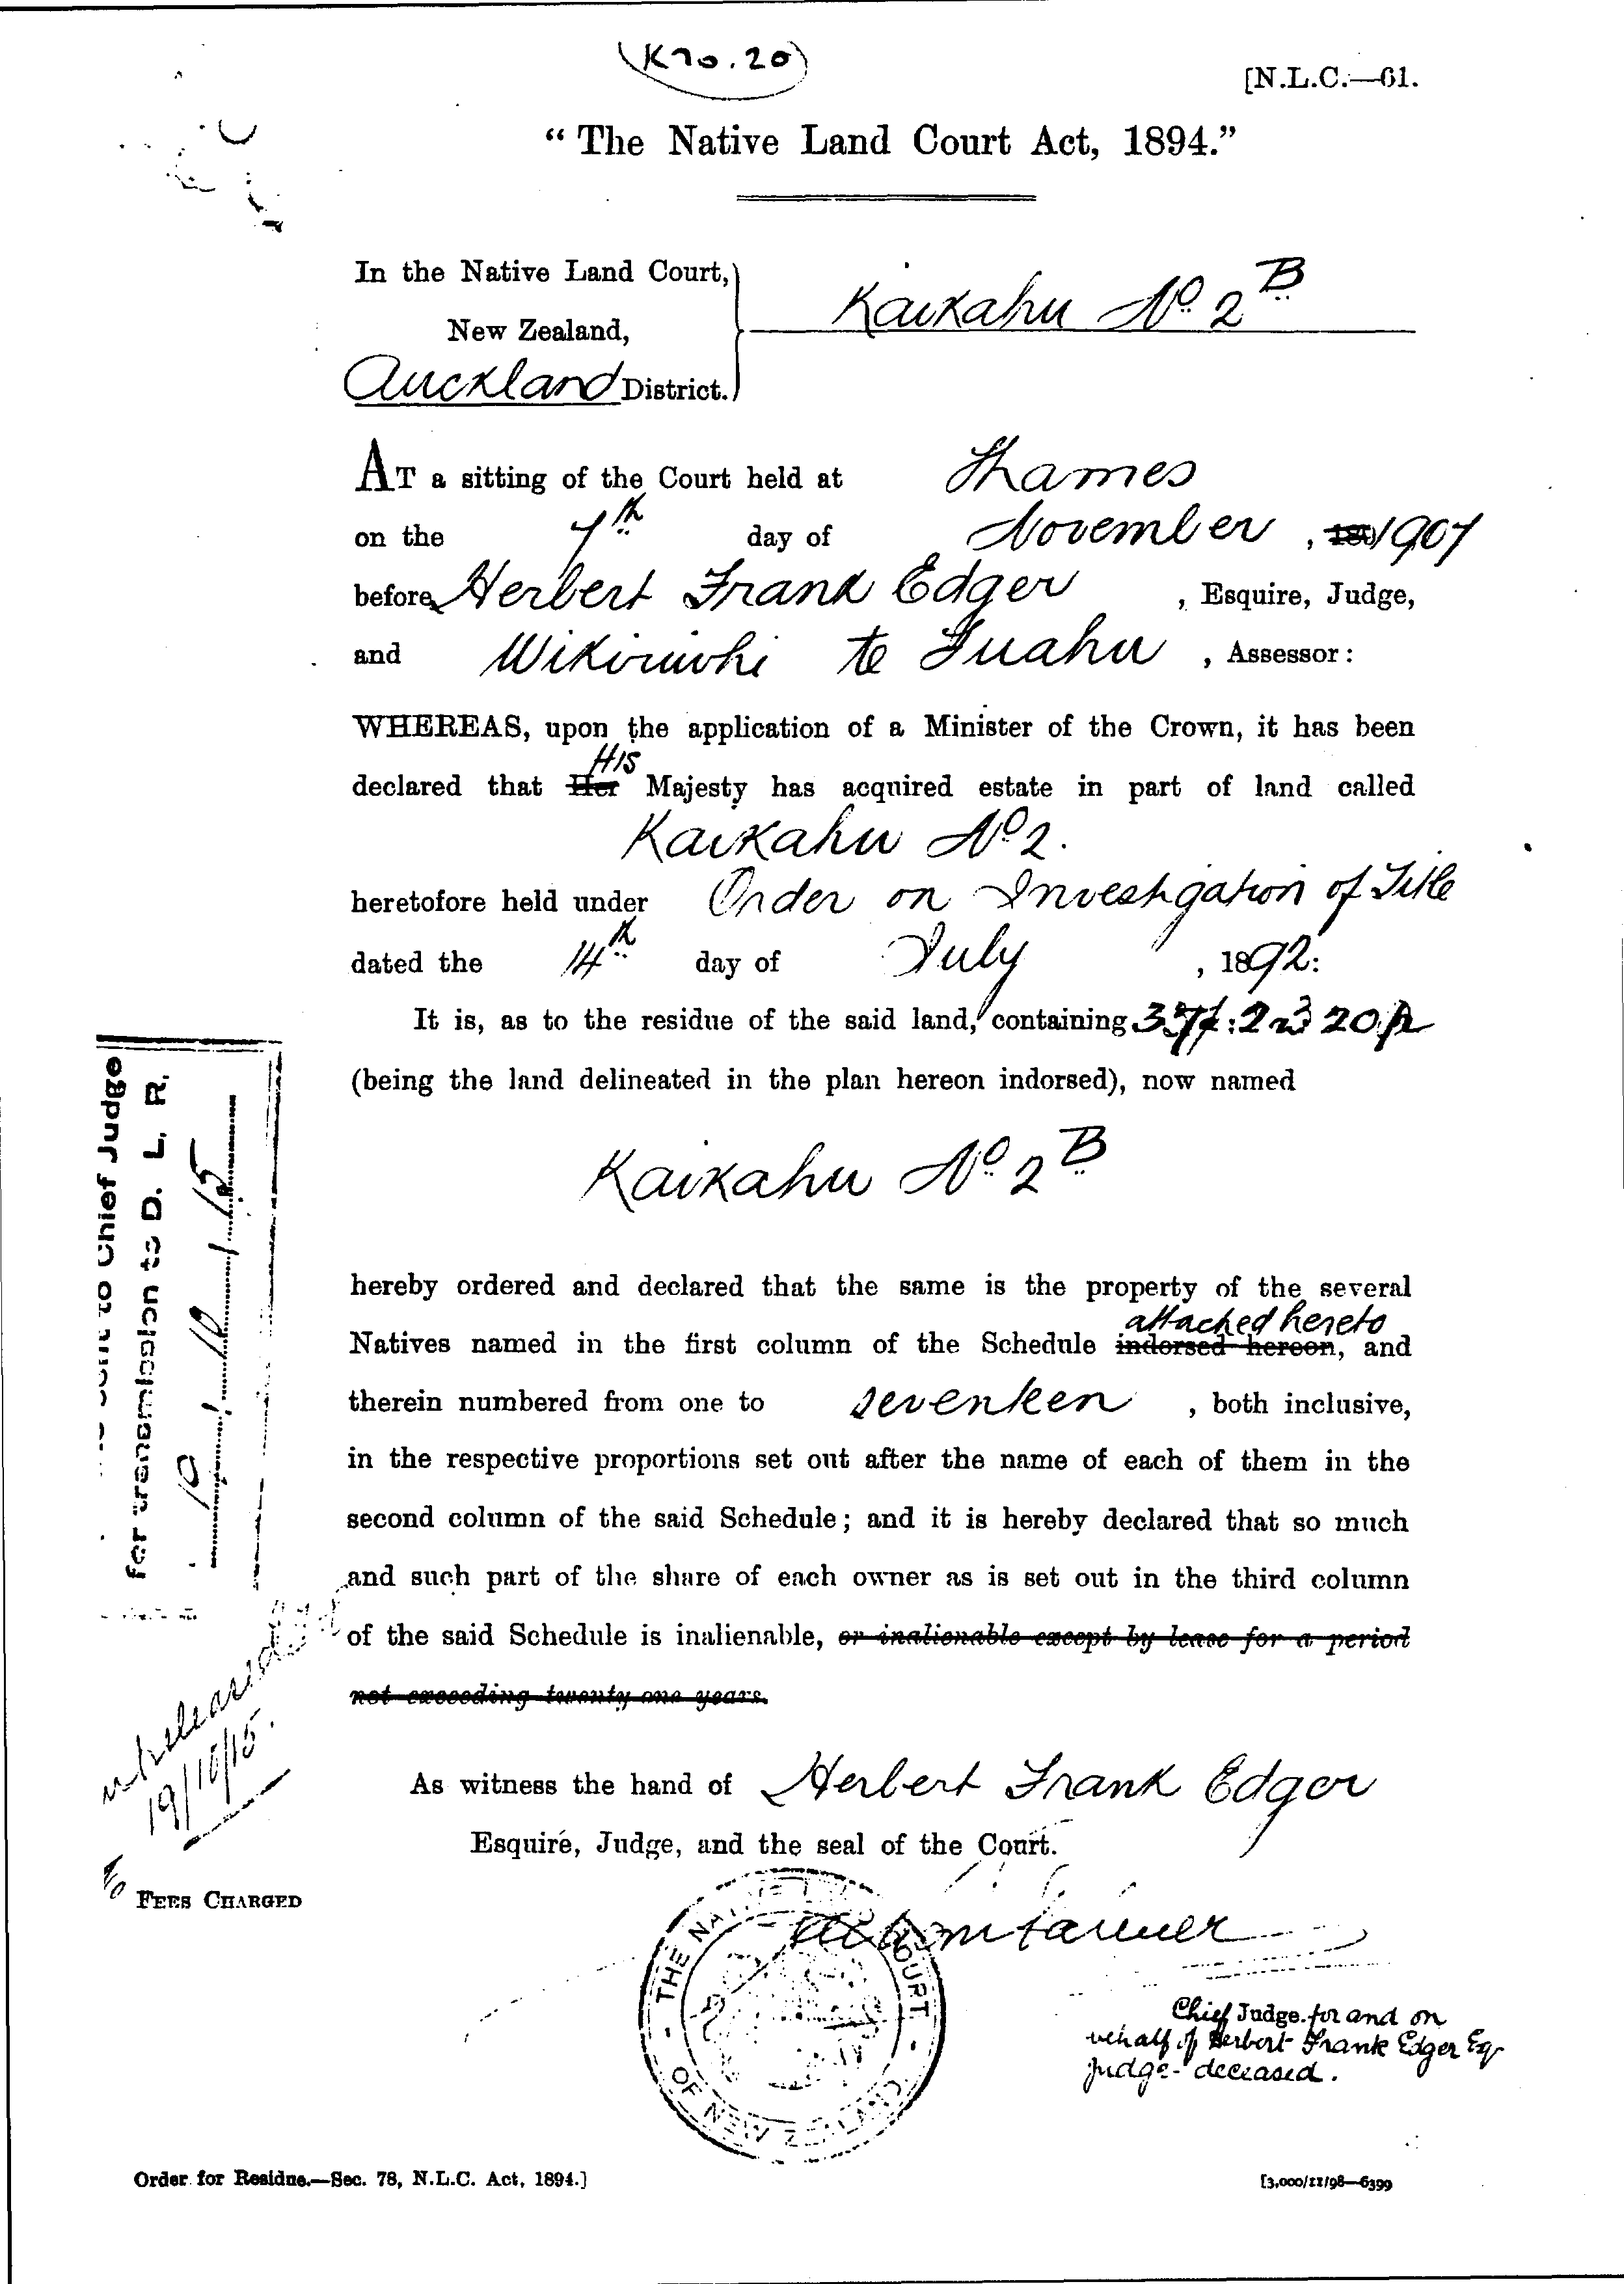 (K70.20)
[N.L.C.—61.
“The Native Land Court Act, 1894.”
In the Native Land Court,
New Zealand,
Auckland District.
Kaikahu No 2B
AT a sitting of the Court held at Thames
on the 7th day of November, 180 1907
before Herbert Frank Edger, Esquire, Judge,
and Wikiriwhi te Tuahu, Assessor:
WHEREAS, upon the application of a Minister of the Crown, it has been
His
declared that Her Majesty has acquired estate in part of land called
Kaikahu No 2.
heretofore held under Order on Investigation of Title
dated the 14th day of July, 1892:
It is, as to the residue of the said land, containing 20p
(being the land delineated in the plan hereon indorsed), now named
Kaikahu No 2B
hereby ordered and declared that the same is the property of the several
attached hereto
Natives named in the first column of the Schedule indorsed hereon, and
therein numbered from one to seventeen, both inclusive,
in the respective proportions set out after the name of each of them in the
second column of the said Schedule; and it is hereby declared that so much
and such part of the share of each owner as is set out in the third column
of the said Schedule is inalienable, or inalienable except by lease for a period
not exceeding twenty-one years.
As witness the hand of Herbert Frank Edger
Esquire, Judge, and the seal of the Court.
FEES CHARGED
THE NATIVE LAND COURT
OF NEW ZEALAND
Chief Judge for and on
behalf of Herbert Frank Edger Esq
Judge deceased.
Order for Residue.—Sec. 78, N.L.C. Act, 1894.]
[3,000/11/98—6399
sent to Chief Judge
for transmission to D. L. R.
19/10/15
19/10/15.